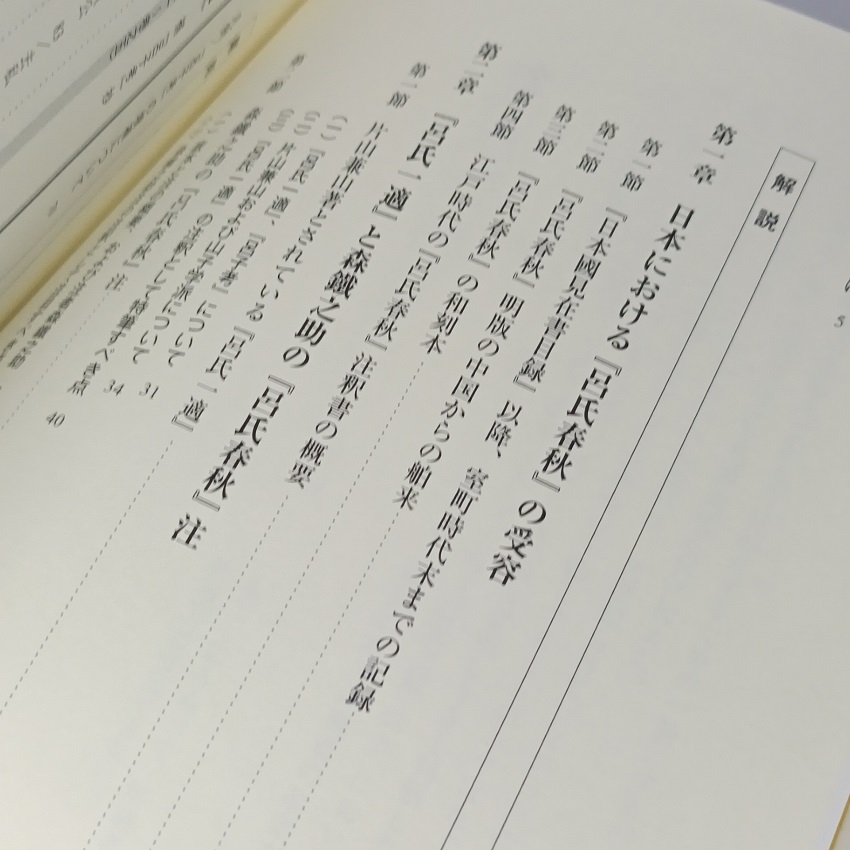 5
解説
第一章 日本における『呂氏春秋』の受容
第一節 『日本國見在書目録』以降、室町時代末までの記録
第二節 『呂氏春秋』明版の中国からの舶来
第三節 『呂氏春秋』の和刻本
第四節 江戸時代の『呂氏春秋』注釈書の概要
第二章 『呂氏一適』と森鐵之助の『呂氏春秋』注
第一節 片山兼山著とされている『呂氏一適』
(一) 『呂氏一適』、『呂子考』について
(二) 片山兼山および山子学派について 31
(三) 『呂氏一適』の注釈として特筆すべき点 34
第二節 森鐵之助の『呂氏春秋』注
40